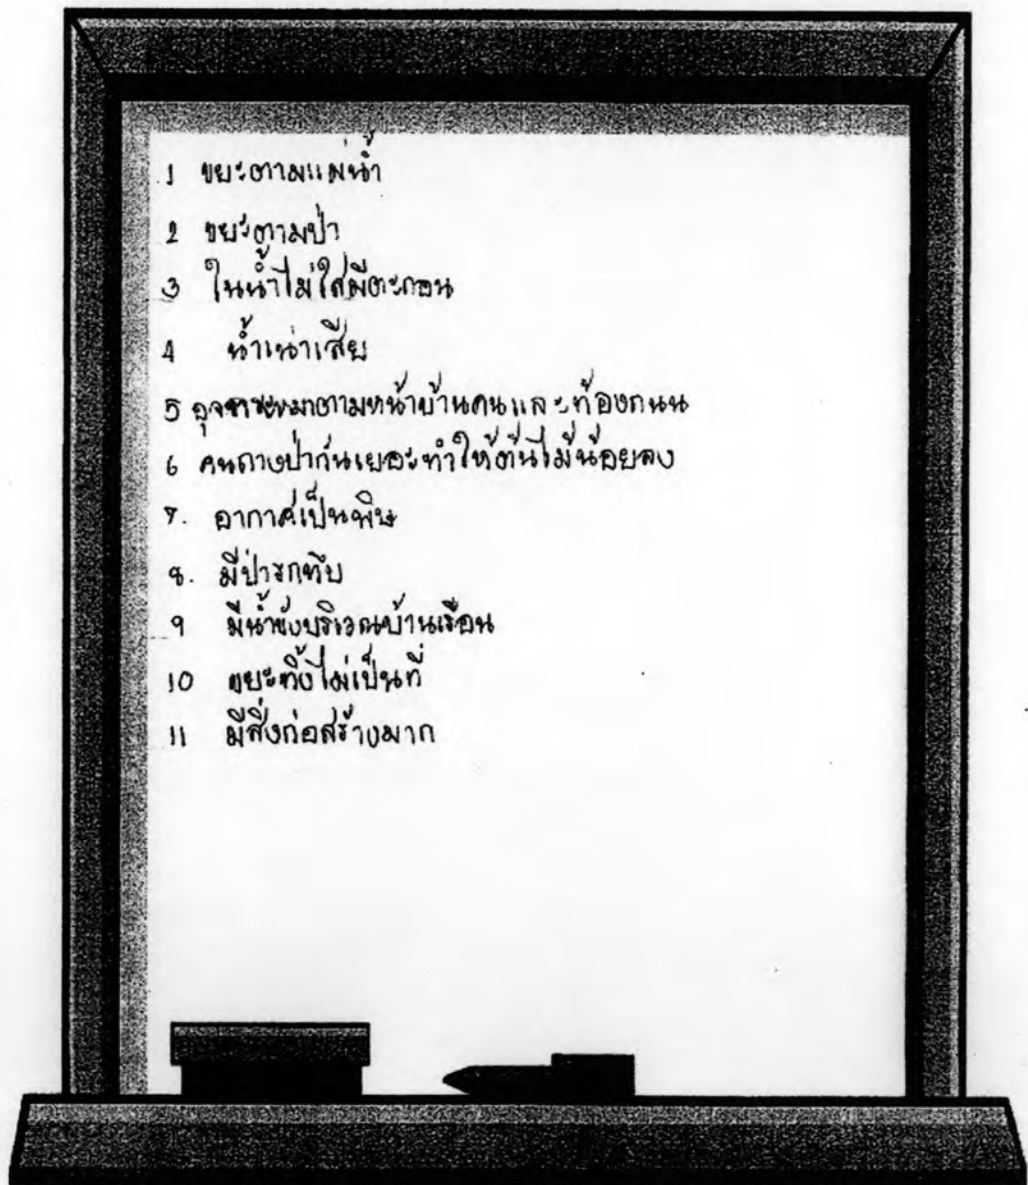 1 ขยะตามแม่น้ำ
2 ขยะตามป่า
3 ในน้ำไม่ใสมีตะกอน
4 น้ำเน่าเสีย
5 อุจจาระหมาตามหน้าบ้านคนและท้องถนน
6 คนถางป่ากันเยอะทำให้ต้นไม้น้อยลง
7. อากาศเป็นพิษ
8. มีป่ารกทึบ
9 มีน้ำขังบริเวณบ้านเรือน
10 ขยะทิ้งไม่เป็นที่
11 มีสิ่งก่อสร้างมาก